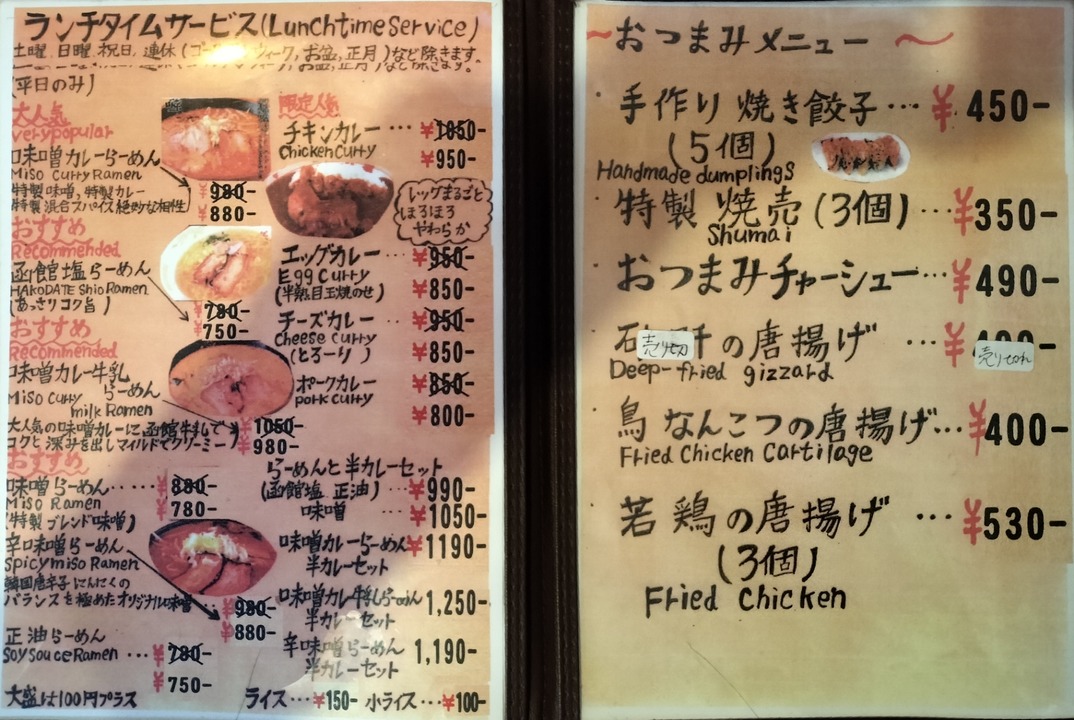 ランチタイムサービス(Lunchtime Service)
土曜、日曜、祝日、連休(ゴールデンウィーク、お盆、正月)など除きます。
(平日のみ)
大人気
very popular
味噌カレーらーめん
Miso Curry Ramen
特製味噌、特製カレー
特製混合スパイス絶妙な相性
¥980-
¥880-
おすすめ
Recommended
函館塩らーめん
HAKODATE Shio Ramen
(あっさりコク旨)
¥780-
¥750-
おすすめ
Recommended
味噌カレー牛乳
らーめん
Miso Curry
milk Ramen
大人気の味噌カレーに函館牛乳で
コクと深みを出しマイルドでクリーミー
¥1050-
¥980-
おすすめ
味噌らーめん・・・・・
Miso Ramen
(特製ブレンド味噌)
¥880-
¥780-
辛味噌らーめん
Spicy miso Ramen
韓国唐辛子にんにくの
バランスを極めたオリジナル味噌
¥980-
¥880-
正油らーめん
Soy Souce Ramen ・・・
¥780-
¥750-
大盛は100円プラス
限定人気
チキンカレー・・・
Chicken Curry
¥1050-
¥950-
レッグまるごと
ほろほろ
やわらか
エッグカレー・・
Egg Curry
(半熟目玉焼のせ)
¥950-
¥850-
チーズカレー・・
Cheese Curry
(とろーり)
¥950-
¥850-
ポークカレー
Pork Curry
¥850-
¥800-
らーめんと半カレーセット
(函館塩 正油)・・・¥990-
味噌 ・・・¥1050-
味噌カレーらーめん¥1190-
半カレーセット
味噌カレー牛乳らーめん 1,250-
半カレーセット
辛味噌らーめん 1,190-
半カレーセット
ライス・・・¥150- 小ライス・・・¥100-
おつまみメニュー
手作り焼き餃子・・・¥450-
(5個)
Handmade dumplings
特製焼売(3個)・・・¥350-
Shumai
おつまみチャーシュー・・・¥490-
売り切
の唐揚げ
売り切れ
Deep-fried gizzard
鳥なんこつの唐揚げ・・・¥400-
Fried Chicken Cartilage
若鶏の唐揚げ ・・・¥530-
(3個)
Fried Chicken